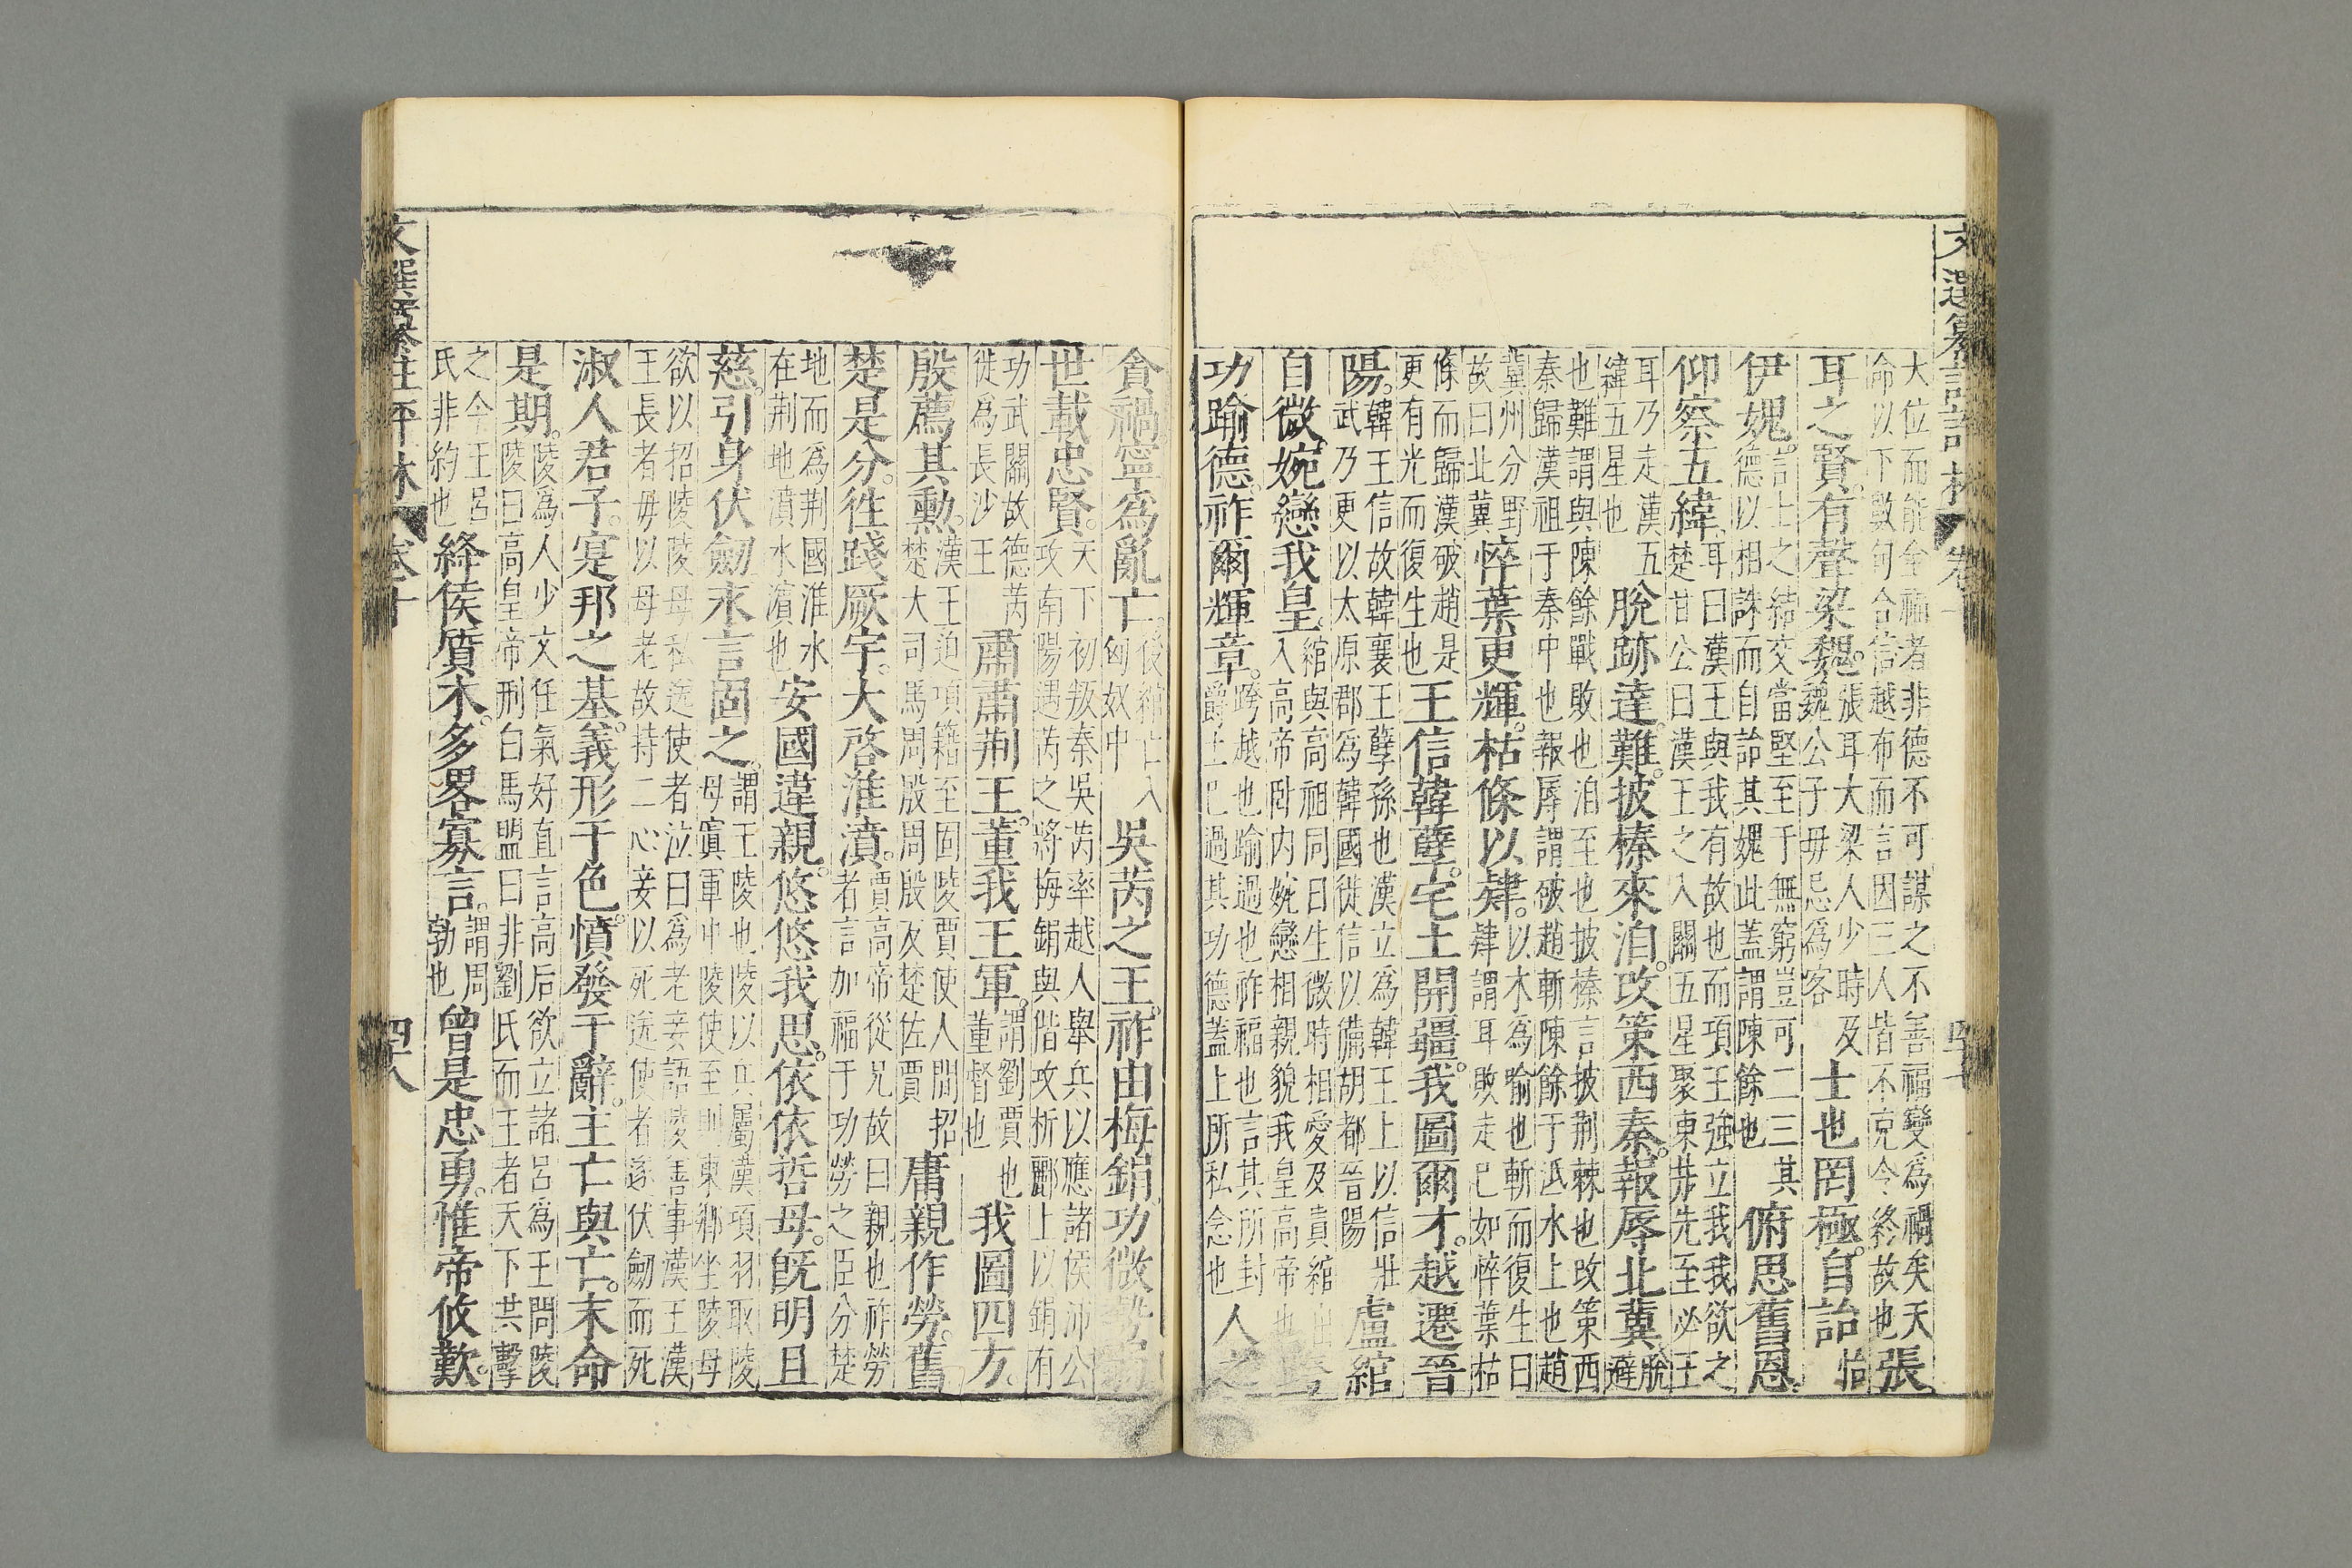 大位而能全福者非德不可謀之不善福變爲禍矣天
命以下數句合信越布而言因三人皆不克令終故也張
耳之賢。有聲梁魏。張耳大梁人少時及
魏公子毋忌爲客士也罔極。自詒怡
伊媿。言士之結交當堅至于無窮豈可二三其
德以相誅而自詒其媿此蓋謂陳餘也俯思舊恩。
仰察五緯。耳曰漢王與我有故也而項王強立我我欲之
楚甘公曰漢王之入關五星聚東井先至必王
耳乃走漢五
緯五星也脫跡違難。披榛來洎。改策西秦。報辱北冀。脫
避
也難謂與陳餘戰敗也洎至也披榛言披荆棘也改策西
秦歸漢祖于秦中也報辱謂破趙斬陳餘于泜水上也趙
冀州分野
故曰北冀悴葉更輝。枯條以肄。以木爲喻也斬而復生曰
肄謂耳敗走已如悴葉枯
條而歸漢破趙是
更有光而復生也王信韓孽。宅土開疆。我圖爾才。越遷晉
陽。韓王信故韓襄王孽孫也漢立爲韓王上以信壯
武乃更以太原郡爲韓國徙信以備胡都晉陽盧綰
自微。婉孌我皇。綰與高祖同日生微時相愛及貴綰
入高帝卧内婉孌相親貌我皇高帝也
功踰德。祚爾輝章。跨越也踰過也祚福也言其所封
爵土已過其功德蓋上所私念也人之
貪禍。寧爲亂亡。後綰亡入
匈奴中吳芮之王。祚由梅鋗。功微
世載忠賢。天下初叛秦吳芮率越人舉兵以應諸侯沛公
攻南陽遇芮之將梅鋗與偕攻析酈上以鋗有
功武關故德芮
徙爲長沙王肅肅荆王。董我王軍。謂劉賈也
董督也我圖四方。
殷薦其勳。漢王追項籍至固陵賈使人間招
楚大司馬周殷周殷反楚佐賈庸親作勞。舊
楚是分。往踐厥宇。大啓淮濆。賈高帝從兄故曰親也祚勞
者言加福于功勞之臣分楚
地而爲荆國淮水
在荆地濆水濱也安國違親。悠悠我思。依依哲母。旣明且
慈。引身伏劒。永言固之。謂王陵也陵以兵屬漢項羽取陵
母寘軍中陵使至則東鄉坐陵母
欲以招陵陵母私送使者泣曰爲老妾語陵善事漢王漢
王長者毋以母老故持二心妾以死送使者遂伏劒而死
淑人君子。寔邦之基。義形于色。憤發于辭。主亡與亡。末命
是期。陵爲人少文任氣好直言高后欲立諸呂爲王問陵
陵曰高皇帝刑白馬盟曰非劉氏而王者天下共擊
之今王呂
氏非約也絳侯質木。多畧寡言。謂周
勃也曾是忠勇。惟帝攸歎。